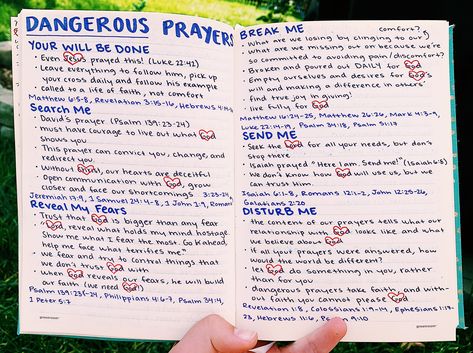 DANGEROUS PRAYERS
YOUR WILL BE DONE
· Even Jesus prayed this! (Luke 22:42)
· Leave everything to follow him, pick up
your cross daily and follow his example
· called to a life of faith, not comfort
Matthew 6:5-8, Revelation 3:15-16, Hebrews 4:14-16
Search Me
· David's prayer (Psalm 139:23-24)
· must have courage to live out what God
shows you
· This prayer can convict you, change, and
redirect you
· Without Christ, our hearts are deceitful
· Open communication with God, grow
closer and face our shortcomings 3:23-24,
Jeremiah 17:9, 1 Samuel 24:4-8, 1 John 2:9, Romans
Reveal My Fears
· Trust that God is bigger than any fear
· God, reveal what holds my mind hostage.
Show me what I fear the most. Go ahead,
help me face what terrifies me."
· we fear and try to control things that
we don't trust God with
· when God reveals our fears, he will build
our faith (we need God!)
Psalm 139:23-24, Philippians 4:6-7, Psalm 34:4,
1 Peter 5:7
BREAK ME
comfort?
· what are we losing by clinging to our
· what are we missing out on because we're
so committed to avoiding pain/discomfort?
· Broken and poured out DAILY for God
· Empty ourselves and desires for God's
will and making a difference in others'
· find true joy in giving!
· live fully for God
Matthew 16:24-25, Matthew 26:26, Mark 4:3-9,
Luke 22:14-19, Psalm 34:18, Psalm 51:17
SEND ME
· Seek the God for all your needs, but don't
stop there
· Isaiah prayed "Here I am. Send me!" (Isaiah 6:8)
· We don't know how God will use us, but we
can trust Him
Isaiah 6:1-8, Romans 12:1-2, John 12:25-26,
Galatians 2:20
DISTURB ME
· the content of our prayers tells what our
relationship with God looks like and what
we believe about God
· If all your prayers were answered, how
would the world be different?
· let God do something in you, rather
than for you
· dangerous prayers take faith and with-
out faith you cannot please God
Revelation 1:8, Colossians 1:9-14, Ephesians 1:17-
23, Hebrews 11:6, Psalm 9:10